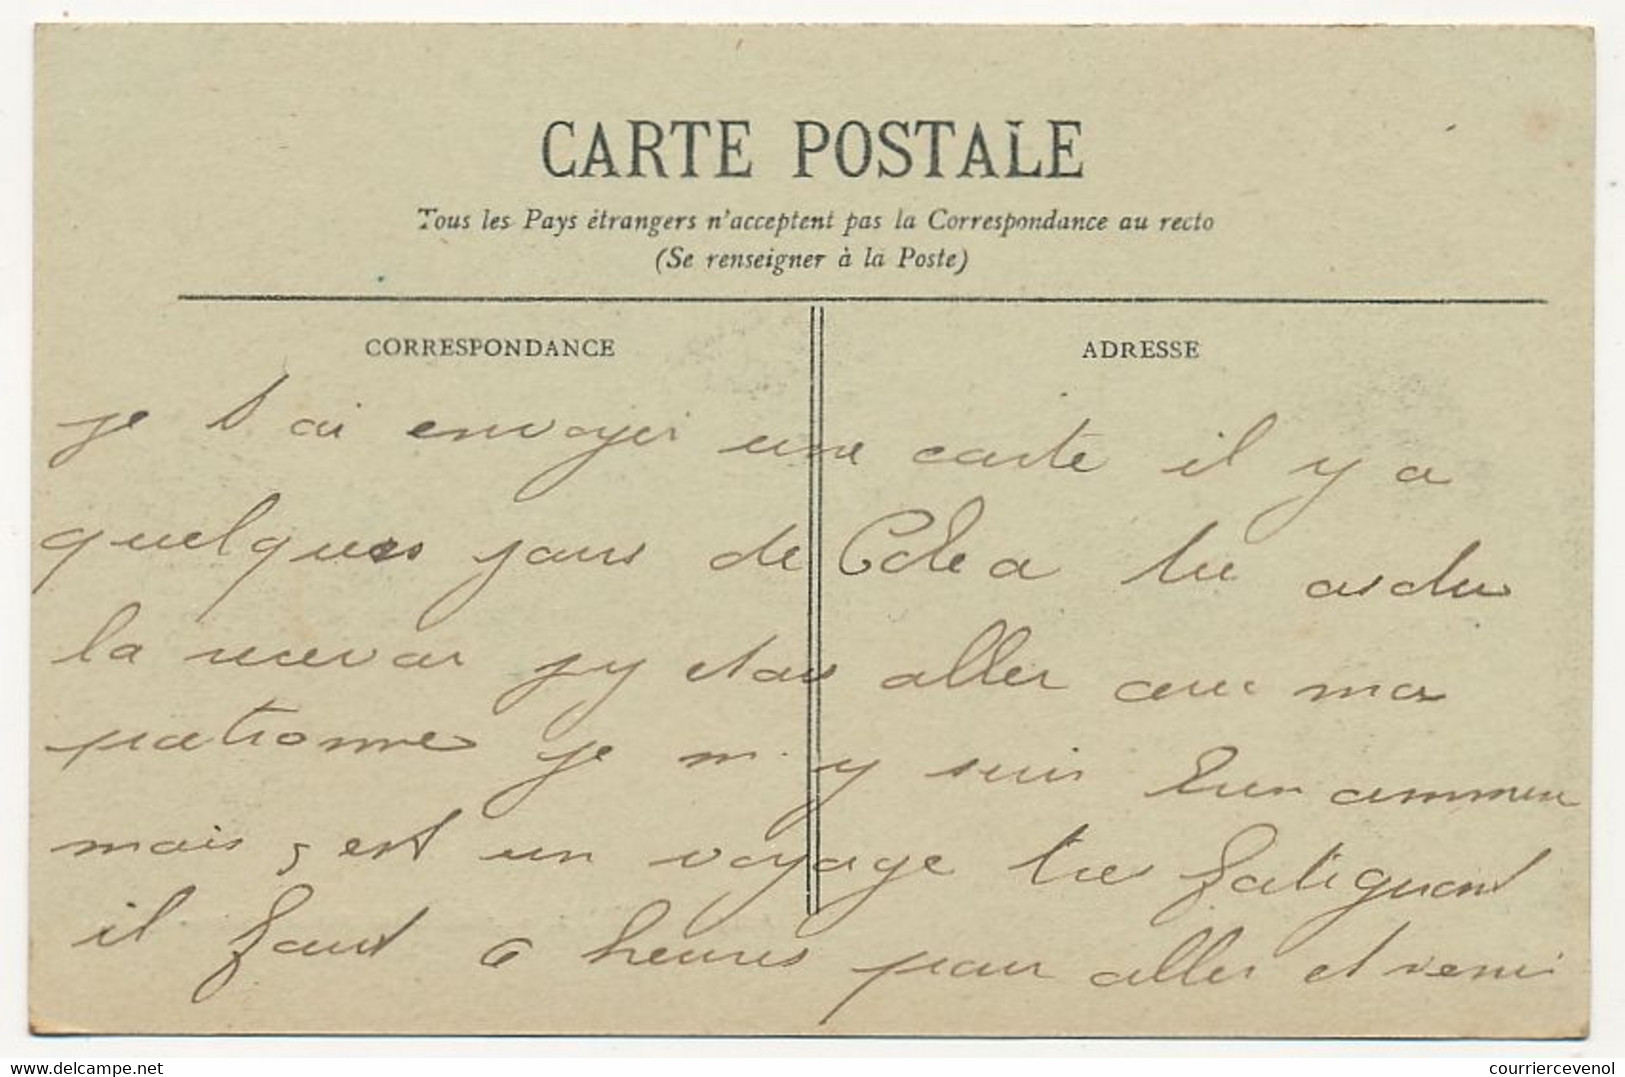 CARTE POSTALE
Tous les Pays étrangers n'acceptent pas la Correspondance au recto
(Se renseigner à la Poste)
CORRESPONDANCE
ADRESSE
je t ai envoyer une carte il y a
quelques jours de Coléa tu as du
la recevoir j y etais aller avec ma
patronne je m y suis bien ammuse
mais s est un voyage tres fatiguant
il faut 6 heures pour aller et venir
www.delcampe.net
courriercevenol